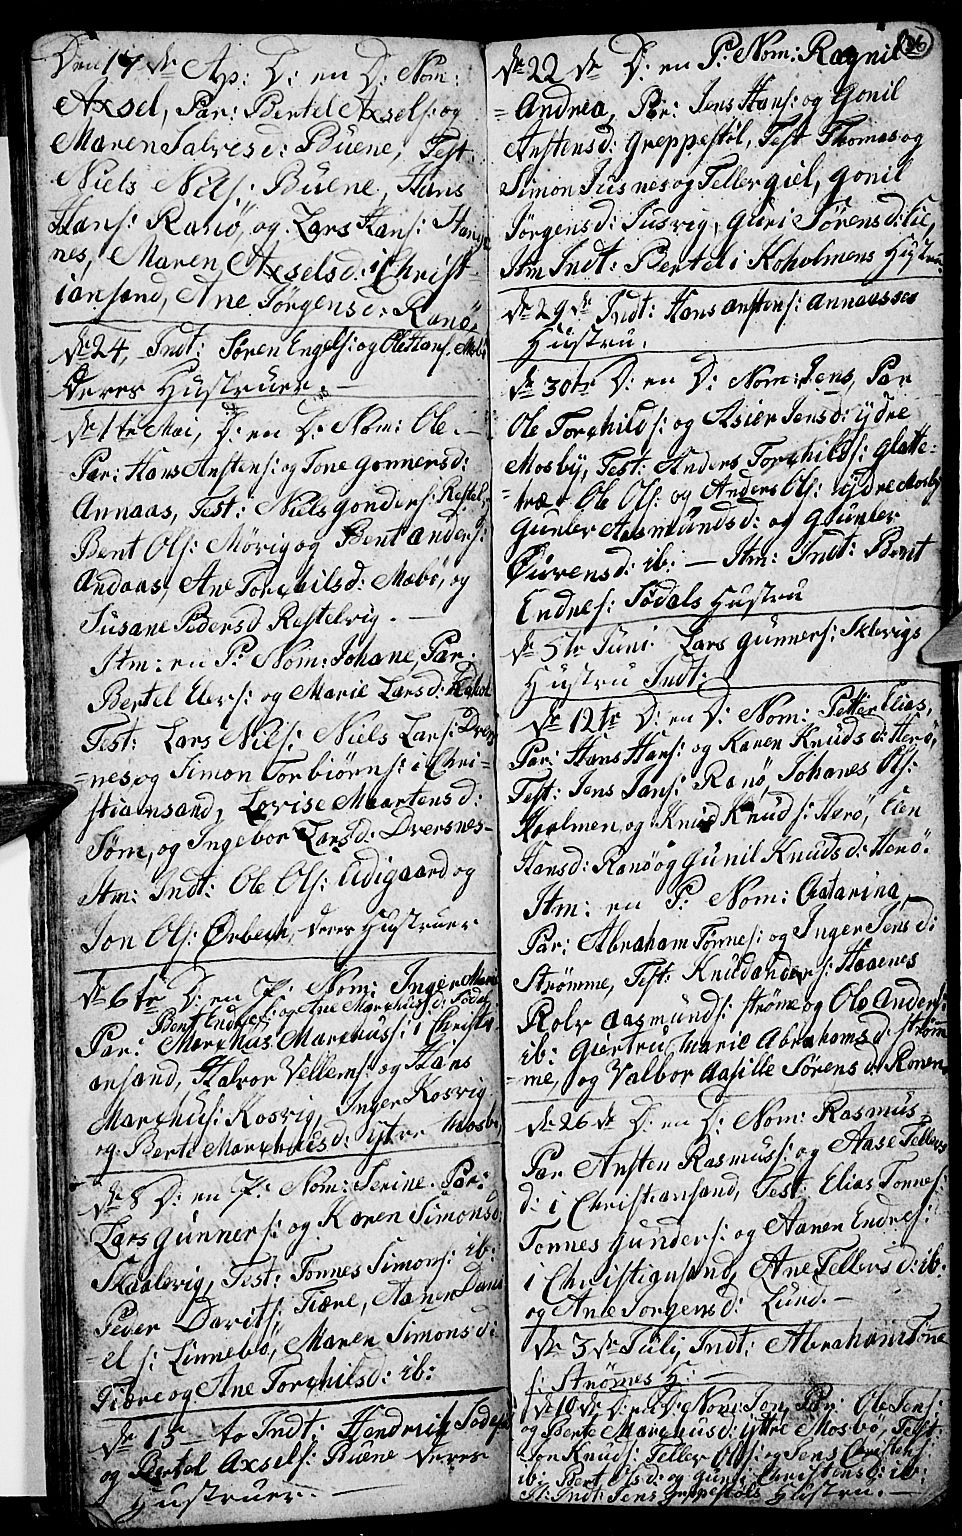 Den 17 de Ap: D: en D: Nom:
Axsel, Par: Bertel Axsels: og
Maren Salvesd: Buene, Test:
Niels Nils: Buene, Hans
Hans: Ranö, og Lars Hans: Hans
nes, Maren Axselsd: i Christ-
iansand, Ane Jörgensd: Ranö,
de 24 Indt: Sören Engels: og Ole Hans: Mebö
Deres Hustruer. —
de 1te Mai, D: en D: Nom: Ole. —
Par: Hans Anstens: og Tone Gonnersd:
Annaas, Test: Niels Gonders: Restel
Bent Ols: Mörig og Bent Anders:
Andaas, Ane Torchilsd: Mæbö, og
Susane Pedersd Restelvig. —
Itm: en P: Nom: Johane, Par:
Bertel Elers: og Marie Larsd:
Test: Lars Nils: Niels Lars: Dvers
=nes og Simon Torbiörns: i Chri-
stiansand, Lovise Maartensd:
Söm, og Ingebor Larsd: Dversnes-
Itm: Indt: Ole Ols: Udigaard og
Jon Ols: Örbech, deres Hustruer.
de 6te D: en P: Nom: Inger Marie
Bent Endres: og Ane Marchusd: Södal
Par: Marchus Marchus: i Christi-
ansand, Halvor Vellems: og Hans
Marchus: Kosvig, Inger Kosvig
og Berte Marchusd: ytre Mosby
de 8 D: en P: Nom: Serine Par:
Lars Gunners: og Karen Simonsd:
Skaalevig, Test: Tönnes Simons: ib:
Peder Davits: Tiære, Aanen Dani
=els: Linnebö, Maren Simonsd:
Tiære og Ane Torchilsd: ib:
de 15 — to Indt: Hendrich Södal
og Bertel Axsels: Buene deres
Hustruer. —
26
de 22 de D: en P: Nom: Ragnil
=Andrea, Par: Jens Hans: og Gonil
Anstensd: Greppestöl, Test Thomas og
Simon Jusnes og Tellergiel, Gonil
Jörgensd: Jusvig, Guri Sörensd: Lie,
Itm Indt: Bertel i Koholmens Hustru.
de 29 de Indt: Hans Anstens: Annaasses
Hustru.
de 30te D: en D: Nom: Jens, Par
Ole Torchilds: og Asier Jensd: ydre
Mosby, Test: Anders Torchilds: Glatte-
=træ Ole Ols: og Anders Ols: ydre Mosby
Gunler Aasmundsd: og Gunler
Öivensd: ib: — Itm: Indt: Berit
Endres: Södals Hustru
de 5te Juni Lars Gunners: Sklevigs
Hustru Indt:
de 12te D: en D: Nom: Petter Elias,
Par: Hans Hans: og Karen Knudsd: Herö,
Test: Jens Jans: Ranö, Johanes Ols:
Hoolmen, og Knud Knuds: Herö, Elen
Hansd: Ranö og Gunil Knudsd: Herö.
Itm: en P: Nom: Chatarina
Par: Abraham Tönnes: og Inger Jensd:
Strömme, Test: Knud Anders: Haanes
Rolv Aasmunds: Ströme og Ole Anders:
ib: Giertru Marie Abrahamsd: Ström
=me, og Valbor Aasille Sörensd: Ronen
de 26 de D: en D: Nom: Rasmus-
Par Ansten Rasmuss: og Aase Tellevs
d: i Christiansand, Test: Elias Tönnes:
Tönnes Gunders: og Aanen Endres:
i Christiansand, Ane Tellevsd: ib:
og Ane Jörgensd: Lund. —
de 3 de Julij Indt: Abraham Töne
s: Strömes H: —
de 10 de D: en D: Nom: Jon, Par: Ole Jens:
og Berte Marchusd: ÿttre Mosbö, Test:
Jon Knuds: Tellev Ols: og Jens Christens:
ib: Bert Olsd: og Guner Christensd: ib:
It: Indt: Jens Greppestöls Hustru. —